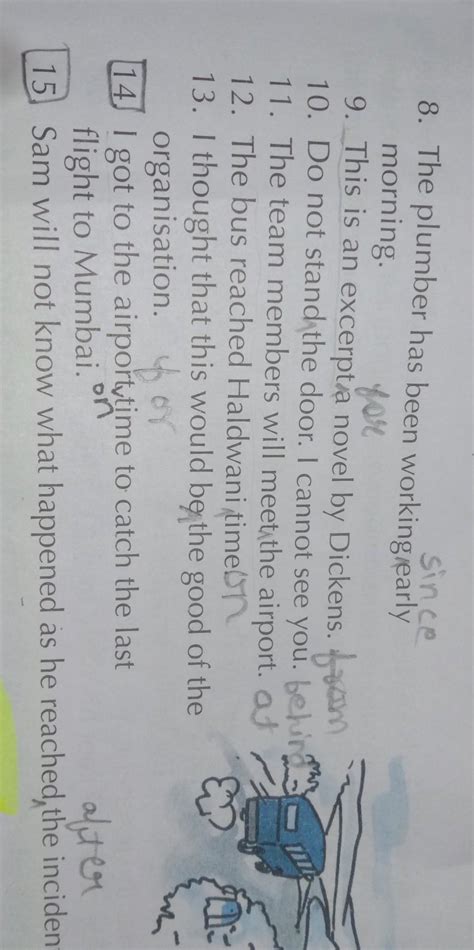 since
8. The plumber has been working early
morning.
for
9. This is an excerpt a novel by Dickens. from
10. Do not stand the door. I cannot see you. behind
11. The team members will meet the airport. at
12. The bus reached Haldwani time. on
13. I thought that this would be the good of the
organisation. for
14 I got to the airport time to catch the last
on
flight to Mumbai.
after
15 Sam will not know what happened as he reached the inciden